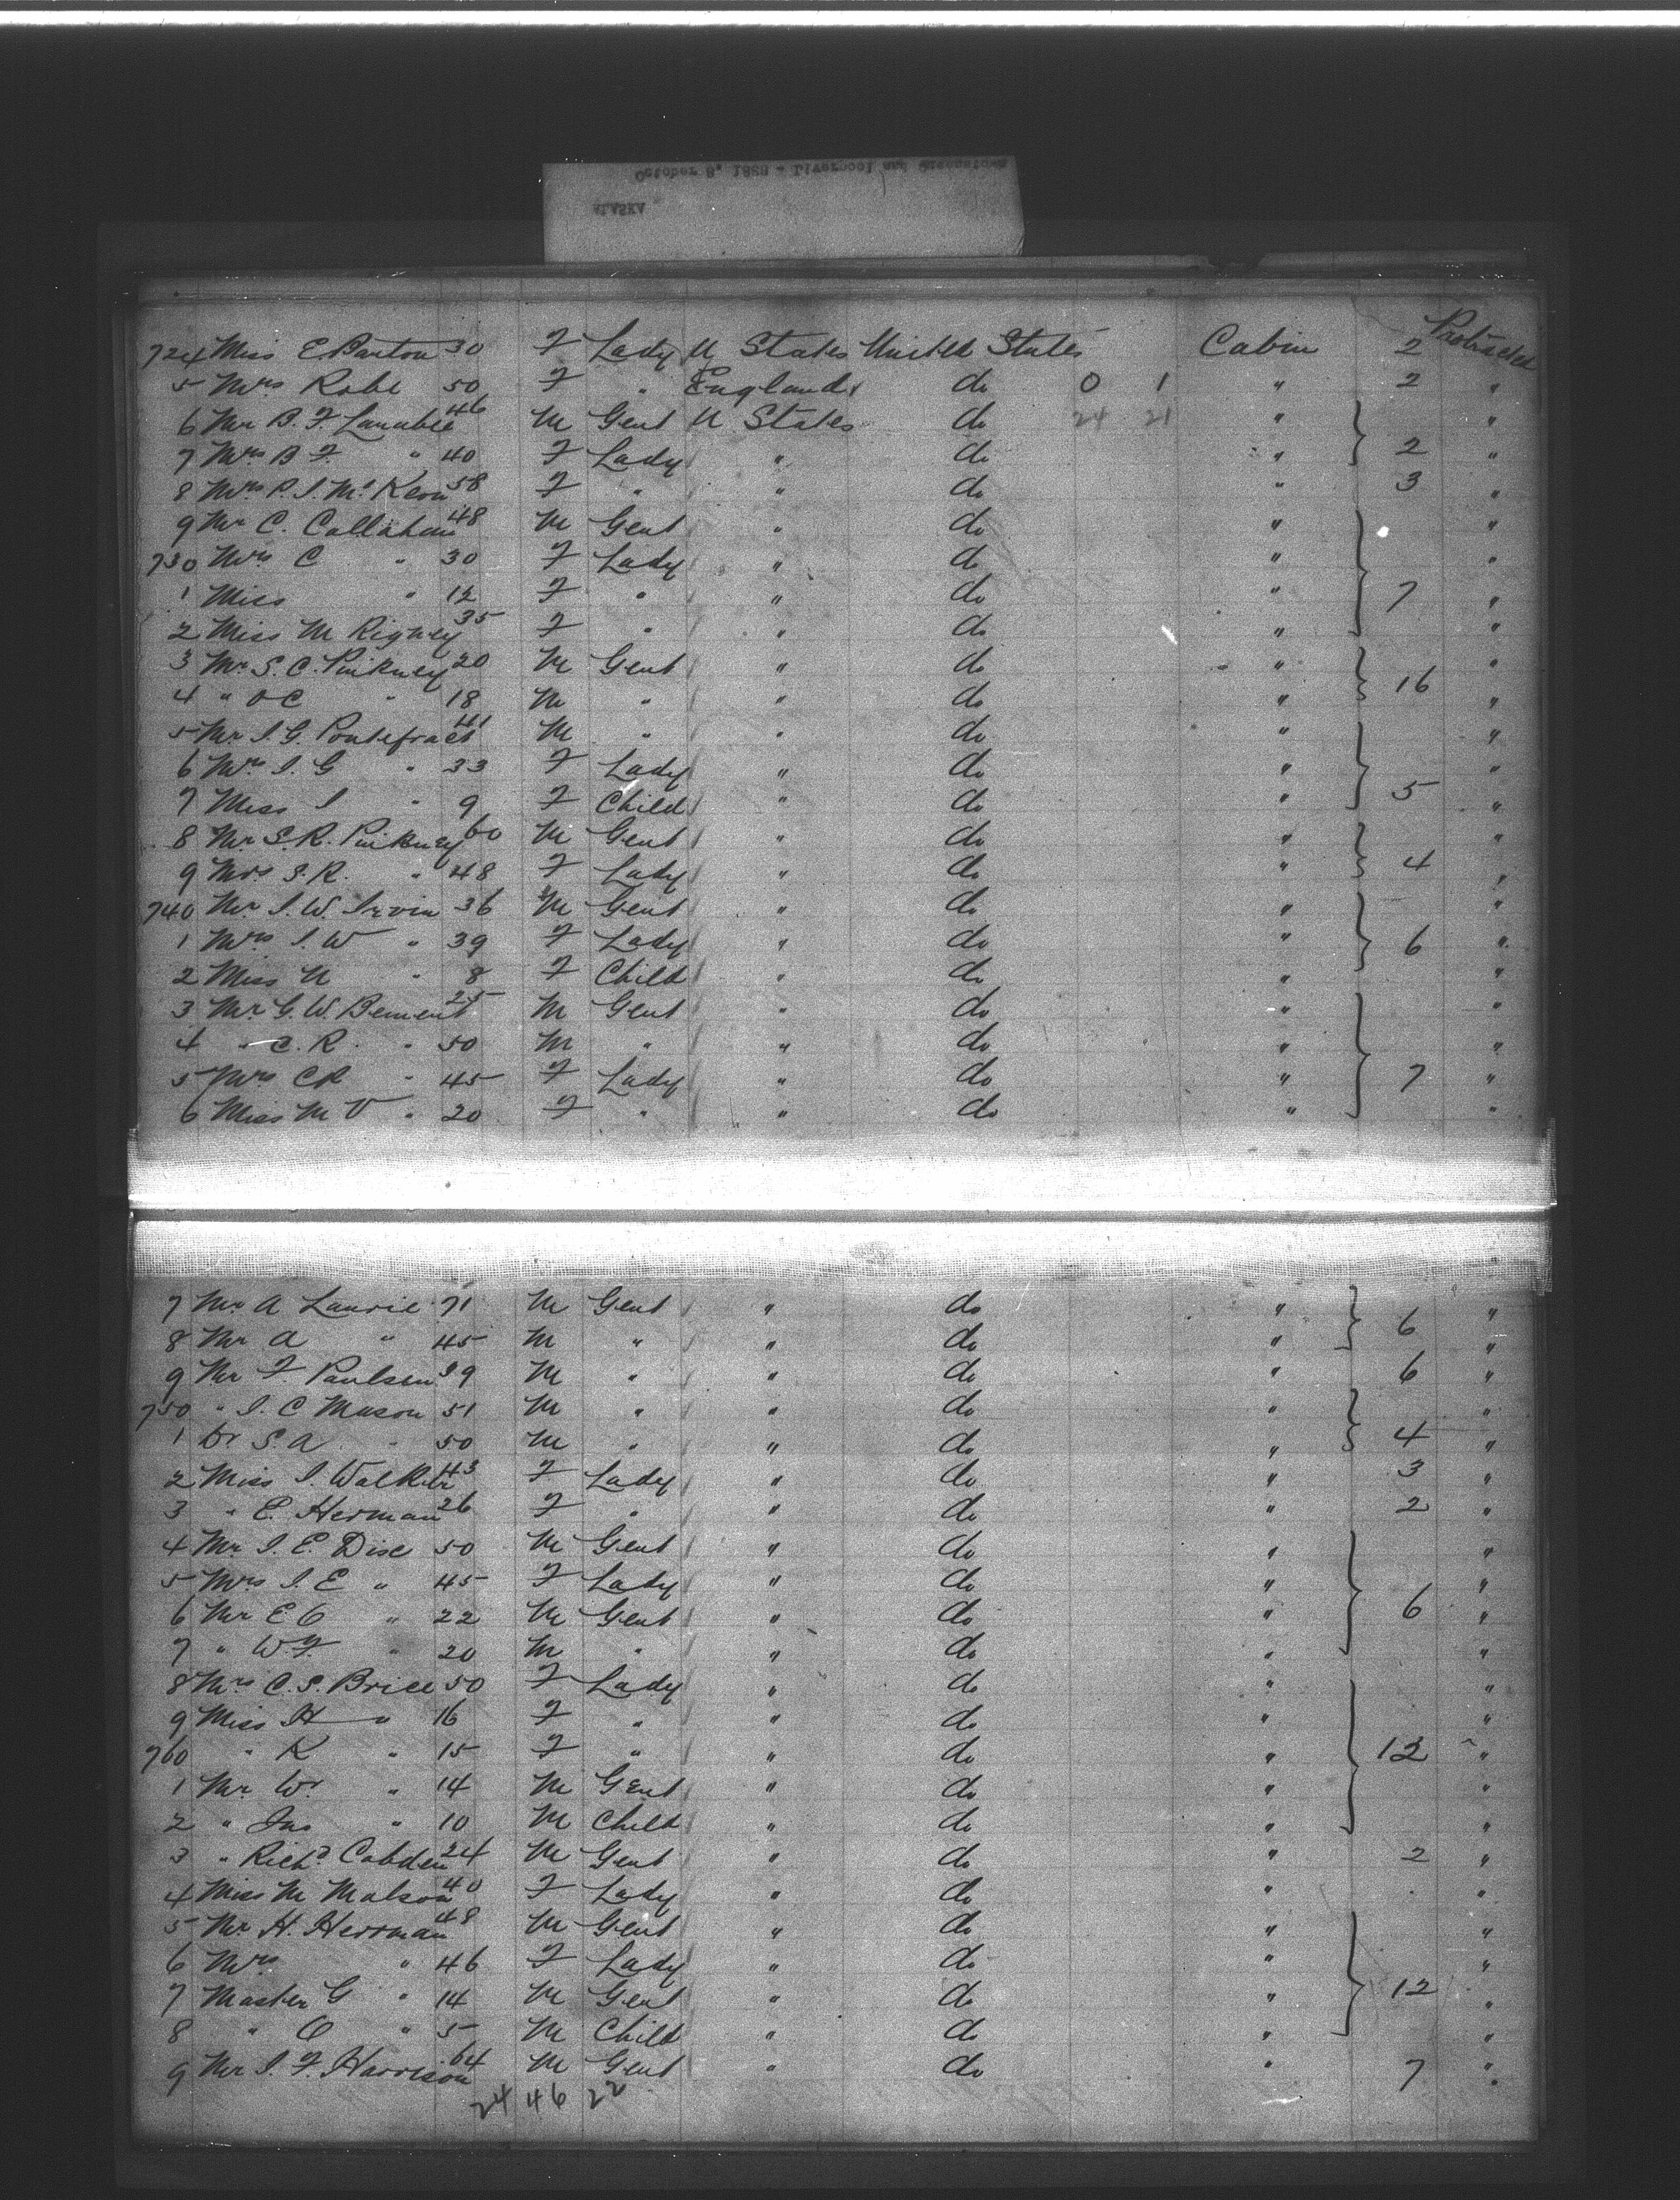 October 8, 1888 - Liverpool and Queenstown
ALASKA
724 Miss E Barton 30 F Lady U States United States Cabin 2 Protracted
5 Mrs Robe 50 F " England do 0 1 " 2 "
6 Mr B. F. 46 M Gent U States do 24 21 " "
7 Mrs B F. " 40 F Lady " do " 2 "
8 Mrs P. J. McKeon 58 F " " do " 3 "
9 Mr C. Callahan 48 M Gent " do " "
730 Mrs C " 30 F Lady " do " "
1 Miss " 12 F " " do " 7 "
2 Miss M Rigney 35 F " " do " "
3 Mr S. C. Pinkney 20 M Gent " do " "
4 " O C " 18 M " " do " 16 "
5 Mr J. G. Pontefract 41 M " " do " "
6 Mrs J. G " 33 F Lady " do " "
7 Miss J " 9 F Child " do " 5 "
8 Mr S. R. Pinkney 60 M Gent " do " "
9 Mrs S. R. " 48 F Lady " do " 4 "
740 Mr J. W. Irvin 36 M Gent " do " "
1 Mrs J. W " 39 F Lady " do " 6 "
2 Miss N " 8 F Child " do " "
3 Mr G. W. Bement 25 M Gent " do " "
4 " C. R. " 50 M " " do " "
5 Mrs CR " 45 F Lady " do " 7 "
6 Miss M V " 20 F " " do " "
7 Mr A Laurie 71 M Gent " do " "
8 Mr A " 45 M " " do " 6 "
9 Mr F. Paulsen 39 M " " do " 6 "
750 " J. C Mason 51 M " " do " "
1 Dr S. A. " 50 M " " do " 4 "
2 Miss J. Walker 43 F Lady " do " 3 "
3 " E. Herman 26 F " " do " 2 "
4 Mr. J. E. Dise 50 M Gent " do " "
5 Mrs J. E " 45 F Lady " do " "
6 Mr E C " 22 M Gent " do " 6 "
7 " W. F. " 20 M " " do " "
8 Mrs C. S. Brice 50 F Lady " do " "
9 Miss H " 16 F " " do " "
760 " K " 15 F " " do " 12 "
1 Mr W. " 14 M Gent " do " "
2 " Jno " 10 M Child " do " "
3 " Richd. Cobden 24 M Gent " do " 2 "
4 Miss M Molson 40 F Lady " do " "
5 Mr H. Herrman 48 M Gent " do " "
6 Mrs " 46 F Lady " do " "
7 Master G " 14 M Gent " do " 12 "
8 " O " 5 M Child " do " "
9 Mr J. F. Harrison 64 M Gent " do " 7 "
24 46 22